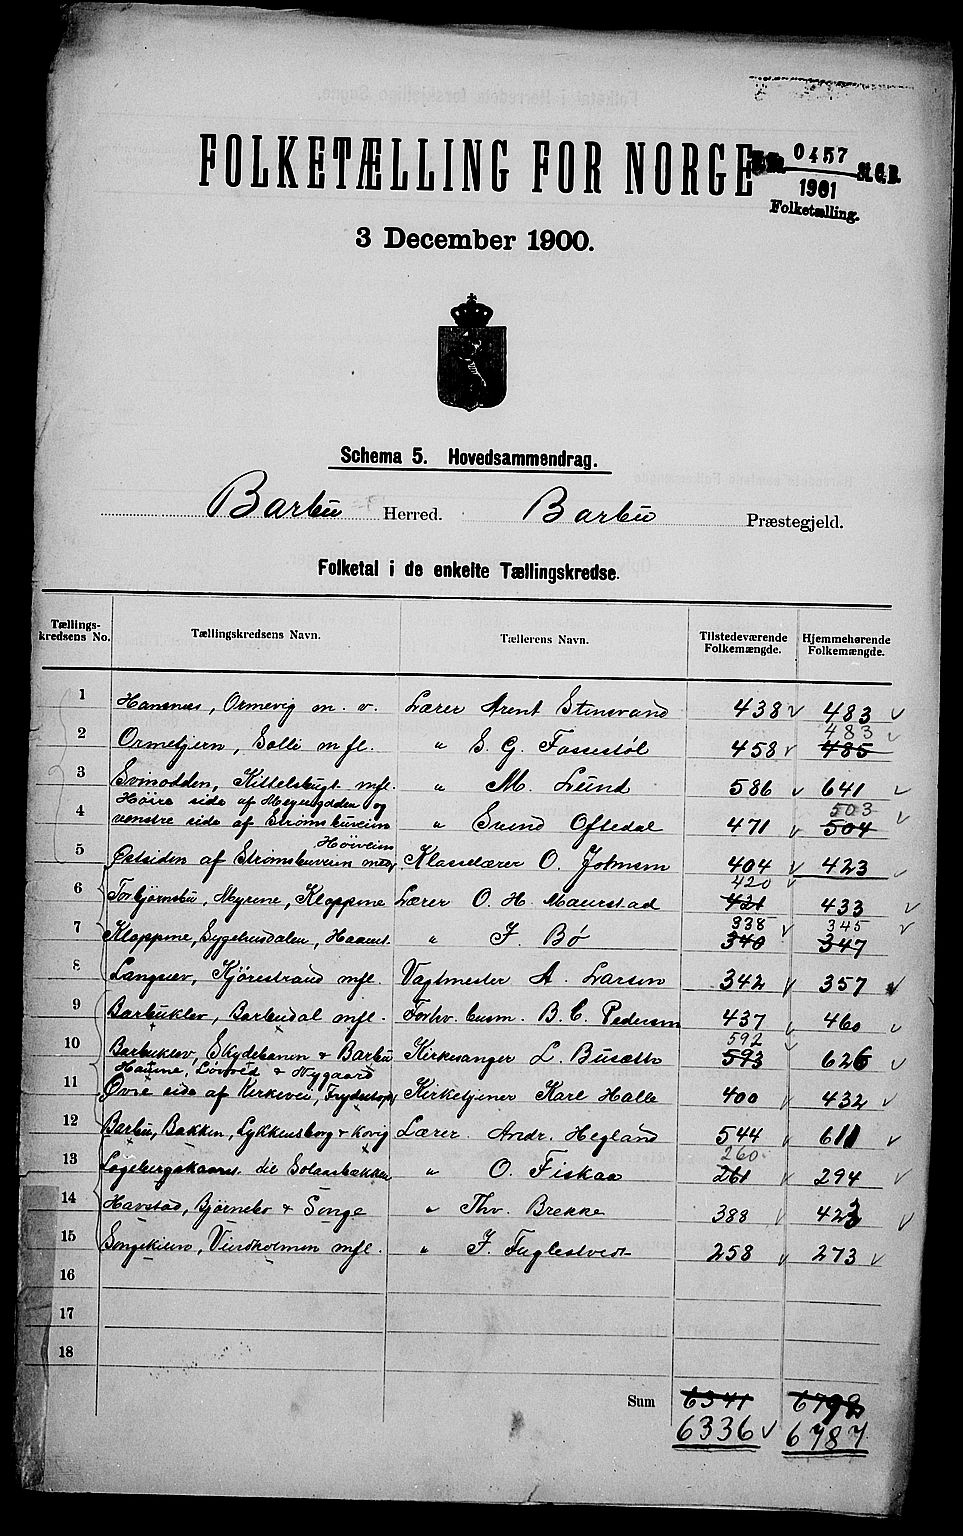 FOLKETÆLLING FOR NORGE
0457
1901
St. C. B.
Folketælling.
3 December 1900.
Schema 5. Hovedsammendrag.
Barbu Herred. Barbu Præstegjeld.
Folketal i de enkelte Tællingskredse.
Tællings-kredsens No. Tællingskredsens Navn. Tællerens Navn. Tilstedeværende Folkemængde. Hjemmehørende Folkemængde.
1 Hansnes, Ormevig m. v. Lærer Arent Stensvand 438 483
2 Ormetjern, Solli m fl. " S. G. Fossestøl 458 485 483
3 Svinodden, Kittelsbugt mfl. " M. Lund 586 641
4 Høire side af Myrodden og
venstre side af Strømsbuveien " Svend Oftedal 471 504 503
Høiveien
5 Østsiden af Strømsbuveien med Klasselærer O. Johnsen 404 423
6 Torbjørnsbu, Myrene, Kloppene Lærer O. H. Maurstad 421 420 433
7 Kloppene, Sygehusdalen, " J. Bø 340 338 347 345
8 Langsæv, Kjørestrand mfl. Vagtmester A. Larsen 342 357
9 Barbuklev, Barbudal mfl. Forhv. B. C. Pedersen 437 460
10 Barbuklev, Skydebanen & Barbu Kirkesanger L. Busæth 593 592 626
Lovred & Nygaard
11 Øvre side af Kirkevei, Kirketjener Karl Halle 400 432
12 Barbu, Bakken, Lykkensborg & Lærer Andr. Hegland 544 611
13 til Solansbakken " O. Fiskaa 261 260 294
14 Havstad, Bjørnebo & Songe " Thv. Brekke 388 423
15 Songekilen, Vindholmen mfl. " J. Fuglestvedt 258 273
16
17
18
Sum 6341 6798
6336 6787